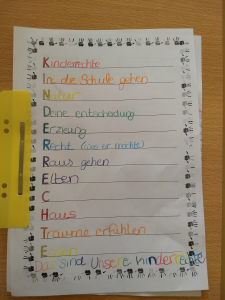 Kinderrechte
In die Schule gehen
Natur
Deine entscheidung
Erziung
Recht (was er möchte)
Raus gehen
Elten
C
Haus
Träume erfühlen
Essen
Das sind Unsere kinderrechte